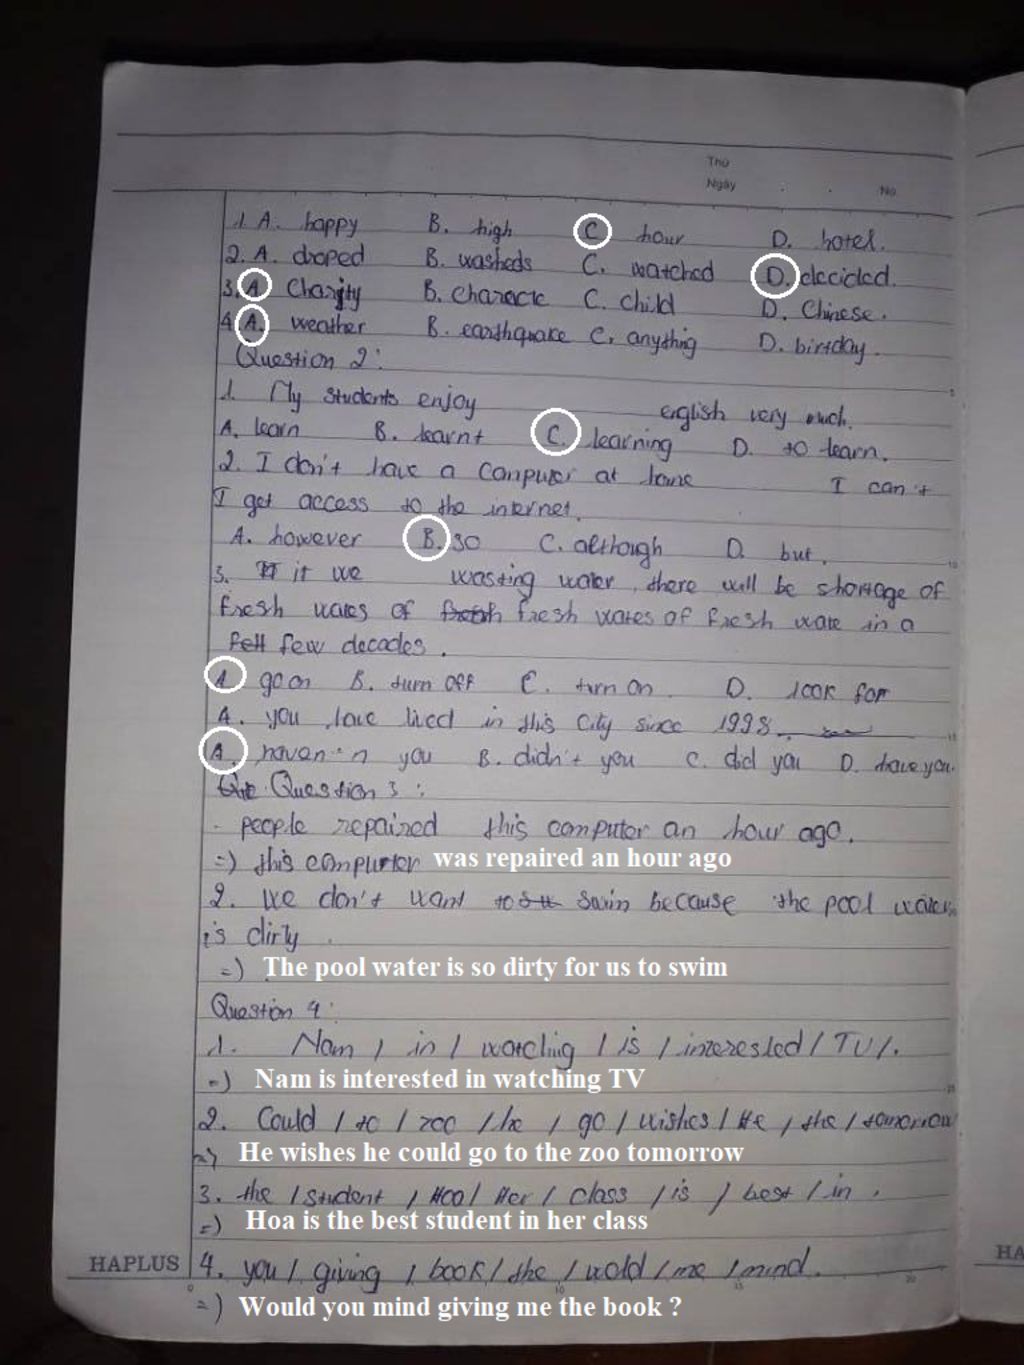 Thứ
Ngày No
1. A. happy B. high C hour D. hotel.
2. A. droped B. washeds C. watched D. decided.
3. A. Charity B. characte C. child D. Chinese.
4 A. weather B. earthquake C. anything D. birtday.
Question 2:
1. My students enjoy english very much.
A. learn B. learnt C. learning D. to learn.
2. I don't have a computer at home I can't
I get access to the internet.
A. however B. so C. although D. but.
3. it we wasting water, there will be shortage of
fresh wates of fresh wates of fresh wate in a
few decades.
A go on B. turn off C. turn on. D. look for
A. you have lived in this city since 1998.
A. haven't you B. didn't you C. did you D. have you.
Question 3:
- people repaired this computer an hour ago.
=) this computer was repaired an hour ago
2. we don't want to swim because the pool water
is dirty.
=) The pool water is so dirty for us to swim
Question 4:
1. Nam / in / watching / is / interested / TV /.
=) Nam is interested in watching TV
2. Could / to / zoo / he / go / wishes / He / the / tomorrow
=) He wishes he could go to the zoo tomorrow
3. the / student / Hoa / Her / class / is / best / in.
=) Hoa is the best student in her class
HAPLUS 4. you / giving / book / the / wold / me / mind.
=) Would you mind giving me the book ?
HA